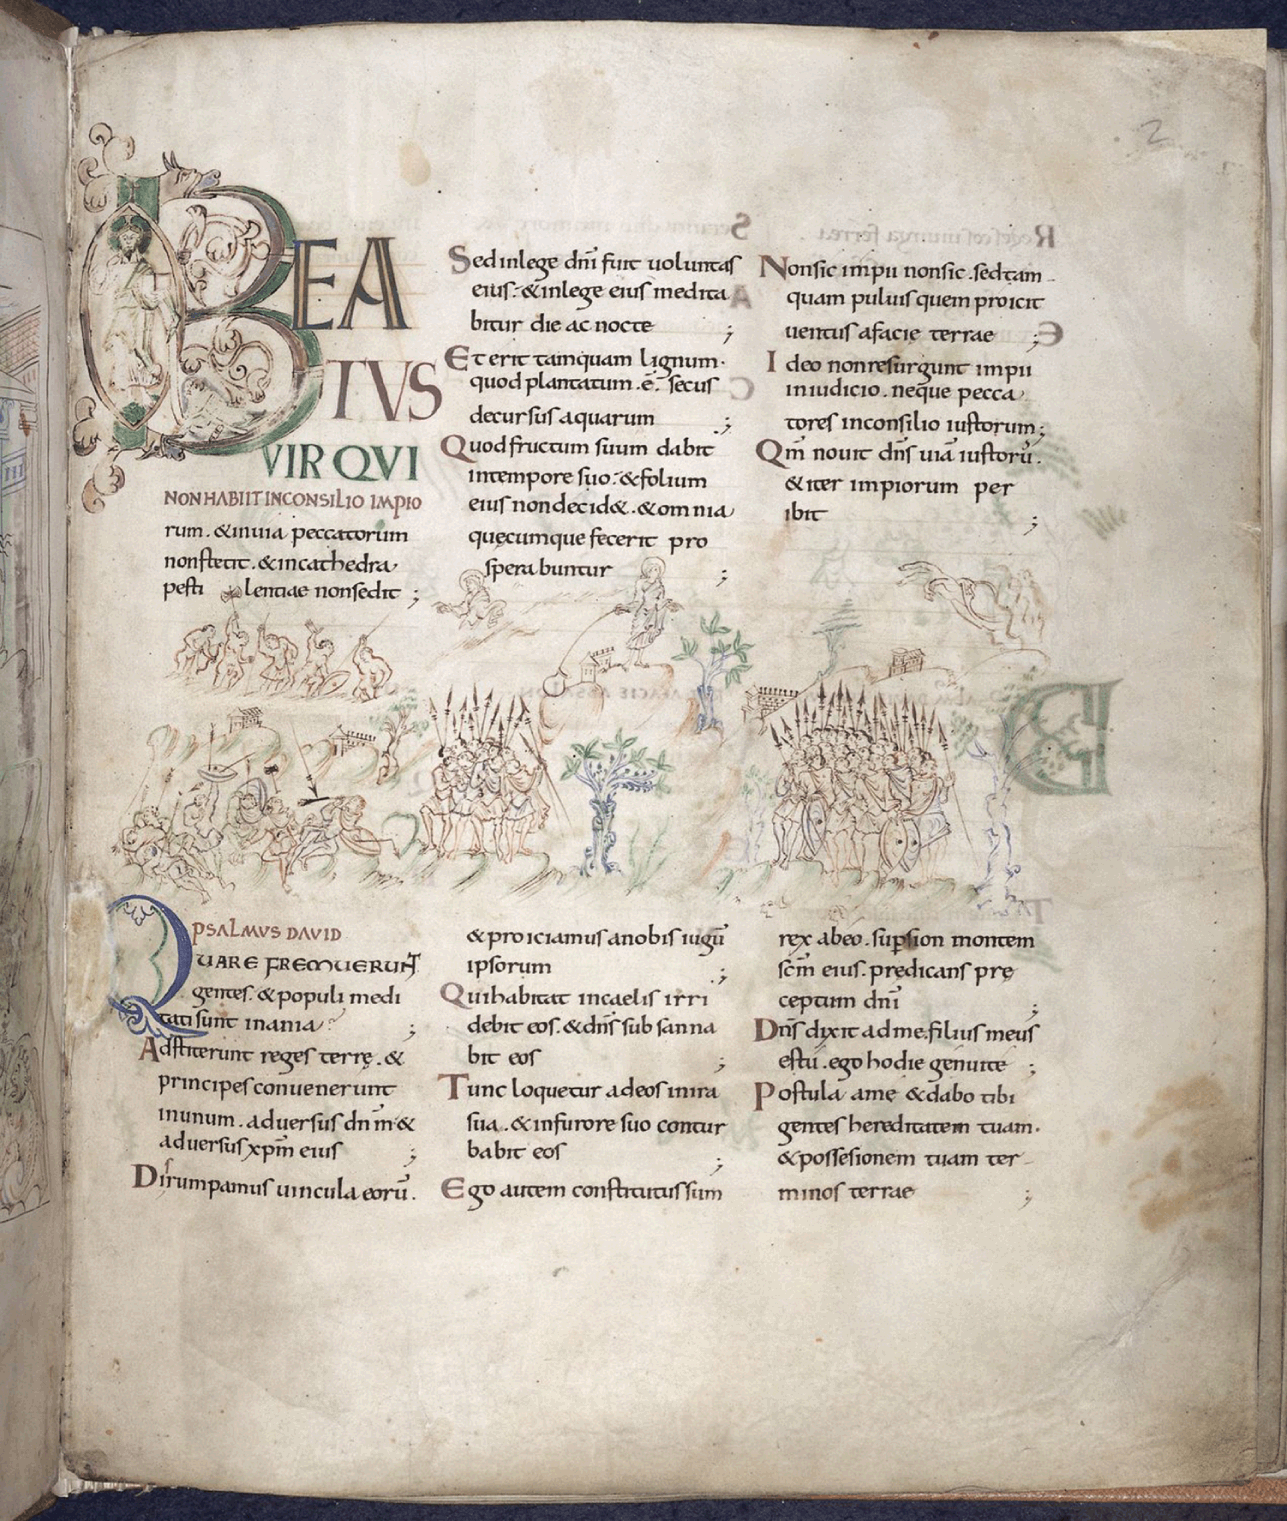 2
BEA
TVS
VIR QVI
NON HABIIT IN CONSILIO IMPIO
rum. & in uia peccatorum
non stetit. & in cathedra
pesti lentiae non sedit ;
Sed in lege dñi fuit uoluntas
eius. & in lege eius medita
bitur die ac nocte ;
Et erit tamquam lignum.
quod plantatum .ē. secus
decursus aquarum ;
Quod fructum suum dabit
in tempore suo. & folium
eius non decid&. & omnia
quęcumque fecerit pro
spera buntur ;
Non sic impii non sic. sed tam
quam puluis quem proicit
uentus a facie terrae ;
Ideo non resurgunt impii
in iudicio. neque pecca
tores in consilio iustorum ;
Qm̄ nouit dñs uiā iustorū.
& iter impiorum per
ibit ;
PSALMVS DAVID
QUARE FREMUERUNT
gentes. & populi medi
tati sunt inania ;
Adstiterunt reges terrę. &
principes conuenerunt
in unum. aduersus dnm̄ &
aduersus xpm̄ eius ;
Dirumpamus uincula eorū.
& proiciamus a nobis iugū
ipsorum ;
Qui habitat in caelis irri
debit eos. & dñs subsanna
bit eos ;
Tunc loquetur ad eos in ira
sua. & in furore suo contur
babit eos ;
Ego autem constitutus sum
rex ab eo. sup sion montem
scm̄ eius. predicans prę
ceptum dñi ;
Dñs dixit ad me. filius meus
es tu. ego hodie genui te ;
Postula a me & dabo tibi
gentes hereditatem tuam.
& possesionem tuam ter
minos terrae ;